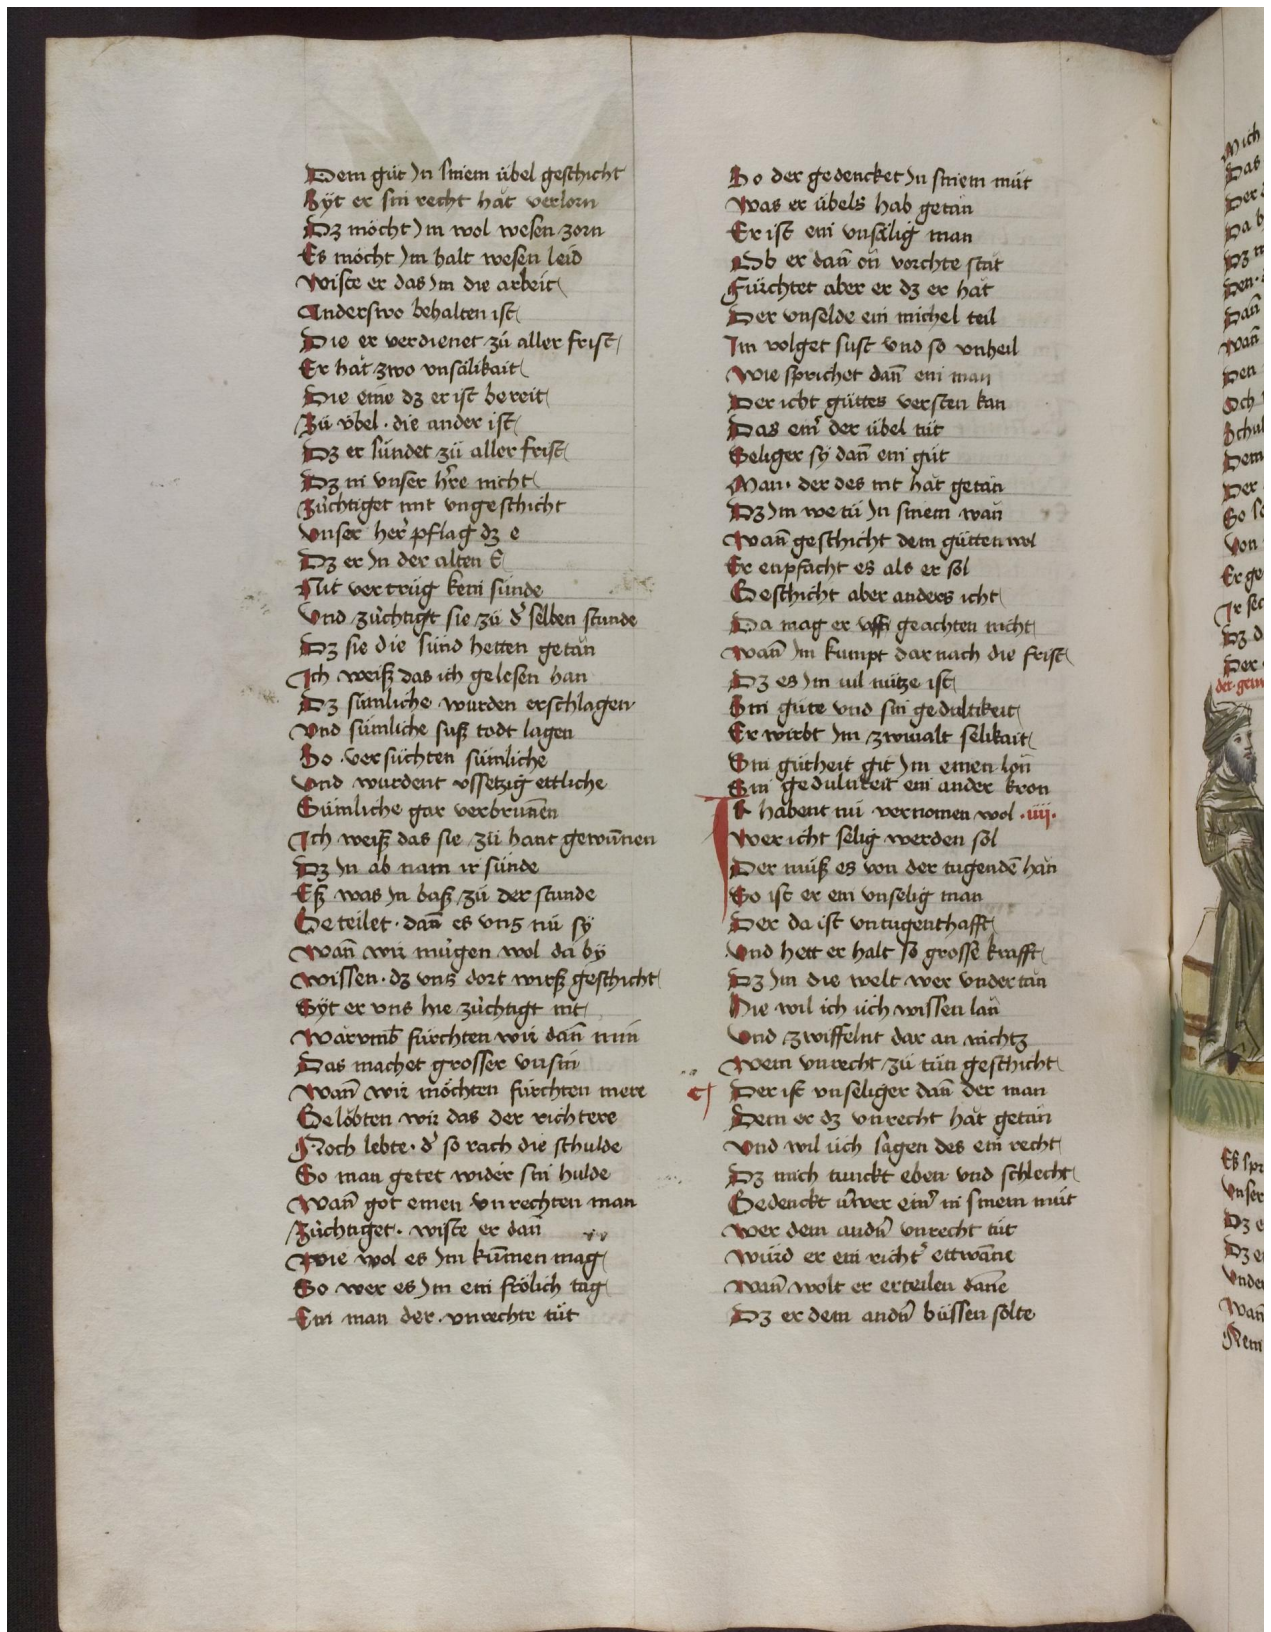 Dem güt In sinem übel geschicht
Syt er sin recht hät verlorn
Dz möcht Im wol wesen zorn
Es möcht Im halt wesen leid
Wiste er das Im die arbeit
Anderswo behalten ist
Die er verdienet zů aller frist
Er hät zwo vnsälikait
Die eine dz er ist bereit
Zü vbel · die ander ist
Dz er sündet zü aller frist
Dz in vnser hr̃e nicht
Züchtiget mit vngeschicht
Vnser her̃ pflag dz e
Dz er In der alten E
Nit vertrüg kein sünde
Vnd züchtigt sie zü d̾ selben stunde
Dz sie die sünd hetten getän
Ich weiß das ich gelesen han
Dz sümliche wurden erschlagen
Vnd sümliche suß todt lagen
So versüchten sümliche
Vnd wurdent vssetzig ettliche
Sümliche gar verbrun̄en
Ich weiß das sie zü hant gewun̄en
Dz In ab nam ir sünde
Eß was In baß zü der stunde
Geteilet · dan̄ es vns nü sy
Wan̄ wir mügen wol da by
Wissen · dz vns dort wirß geschicht
Syt er vns hie züchtigt nit
Warvmb fürchten wir dan̄ nun
Das machet grosser vnsin
Wan̄ wir möchten fürchten mere
Gelöbten wir das der richtere
Noch lebte · d̾ so rach die schulde
So man getet wider sin hulde
Wan̄ got einen vnrechten man
Züchtiget · wiste er dan̄
Wie wol es Im kum̄en mag
So wer es Im ein frölich tag
Ein man der · vnrechte tüt
So der gedencket In sinem müt
Was er übels hab getän
Er ist ein vnsälig man
Ob er dan̄ on̄ vorchte stät
Fürchtet aber er dz er hät
Der vnselde ein michel teil
Im volget sust vnd so vnheil
Wie sprichet dan̄ ein man
Der icht güttes versten kan
Das ein̾ der übel tüt
Seliger sy dan̄ ein güt
Man · der des nit hät getän
Dz Im we tü In sinem wan̄
Wan̄ geschicht dem gütten wol
Er enpfacht es als er sol
Geschicht aber anders icht
Da mag er vff geachten nicht
Wan̄ Im kumpt dar nach die frist
Dz es Im vil nütze ist
Sin güte vnd sin gedultikeit
Er wirbt Im zwiualt selikait
Sin gütheit git Im einen lon̄
Sin gedulticeit ein ander kron
Ir habent nü vernomen wol · iiii ·
Wer icht selig werden sol
Der müß es von der tugendē hän
So ist er ein vnselig man
Der da ist vntugenthafft
Vnd hett er halt so grosse krafft
Dz Im die welt wer vndertän
Hie wil ich üch wissen län
Vnd zwiffelnt dar an nichtz
Wem vnrecht zü tün geschicht
Der ist vnseliger dan̄ der man
Dem er dz vnrecht hät getän
Vnd wil üch sagen des ein recht
Dz mich tunckt eben vnd schlecht
Gedenckt üwer ein̾ in sinem müt
Wer dem andn̾ vnrecht tüt
Würd er ein richt̾ ettwān̄e
Wan̄ wolt er erteilen dan̄e
Dz er dem andn̾ büssen solte